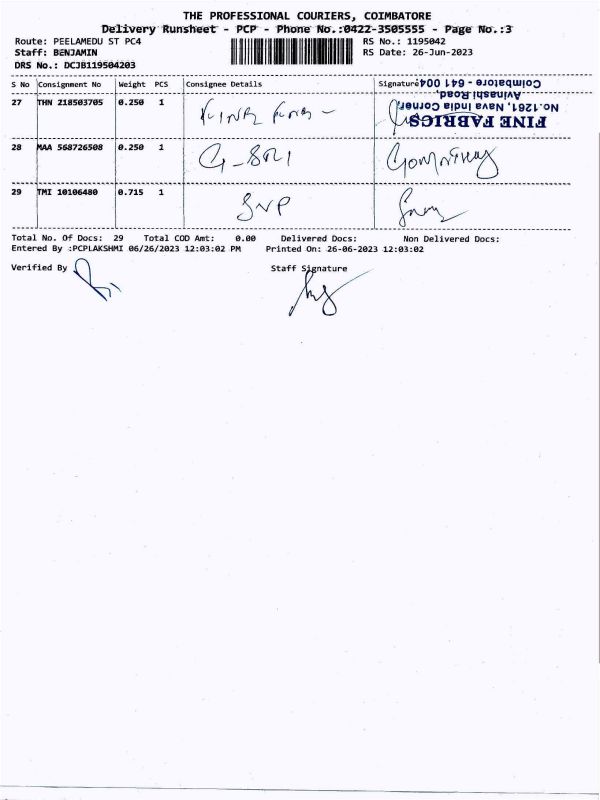 THE PROFESSIONAL COURIERS, COIMBATORE
Delivery Runsheet - PCP - Phone No.:0422-3505555 - Page No.:3
Route: PEELAMEDU ST PC4 RS No.: 1195042
Staff: BENJAMIN RS Date: 26-Jun-2023
DRS No.: DCJB119504203
S No Consignment No Weight PCS Consignee Details Signature
27 THN 218503705 0.250 1
FINE FABRICS
No.1261, Nava India Corner,
Avinashi Road,
Coimbatore - 641 004
28 MAA 568726508 0.250 1 G-SRI Gomathy
29 TMI 10106480 0.715 1 SVP
Total No. Of Docs: 29 Total COD Amt: 0.00 Delivered Docs: Non Delivered Docs:
Entered By :PCPLAKSHMI 06/26/2023 12:03:02 PM Printed On: 26-06-2023 12:03:02
Verified By Staff Signature